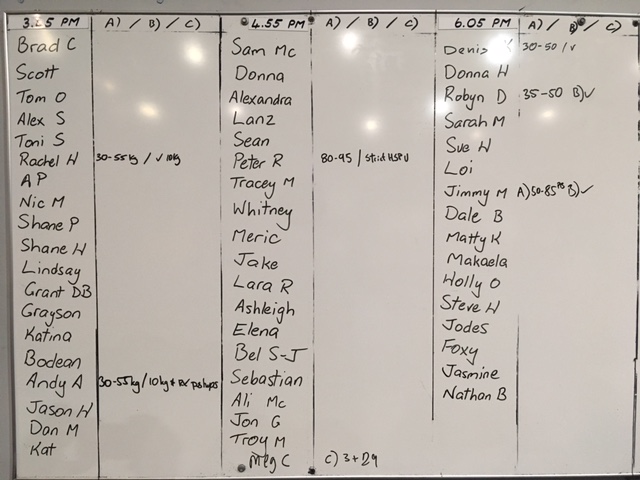 3.25 PM A) / B) / C)
Brad C
Scott
Tom O
Alex S
Toni S
Rachel H 30-55kg / ✓ 10kg
A P
Nic M
Shane P
Shane H
Lindsay
Grant DB
Grayson
Katina
Bodean
Andy A 30-55kg / 10kg + RX pushups
Jason H
Dan M
Kat
4.55 PM A) / B) / C)
Sam Mc
Donna
Alexandra
Lanz
Sean
Peter R 80-95 / Strict HSPU
Tracey M
Whitney
Meric
Jake
Lara R
Ashleigh
Elena
Bel S-J
Sebastian
Ali Mc
Jon G
Troy M
Meg C C) 3+29
6.05 PM A) / B) / C)
Denis 30-50 / ✓
Donna H
Robyn D 35-50 B)✓
Sarah M
Sue H
Loi
Jimmy M A)50-85 B)✓
Dale B
Matty K
Makaela
Holly O
Steve H
Jodes
Foxy
Jasmine
Nathan B